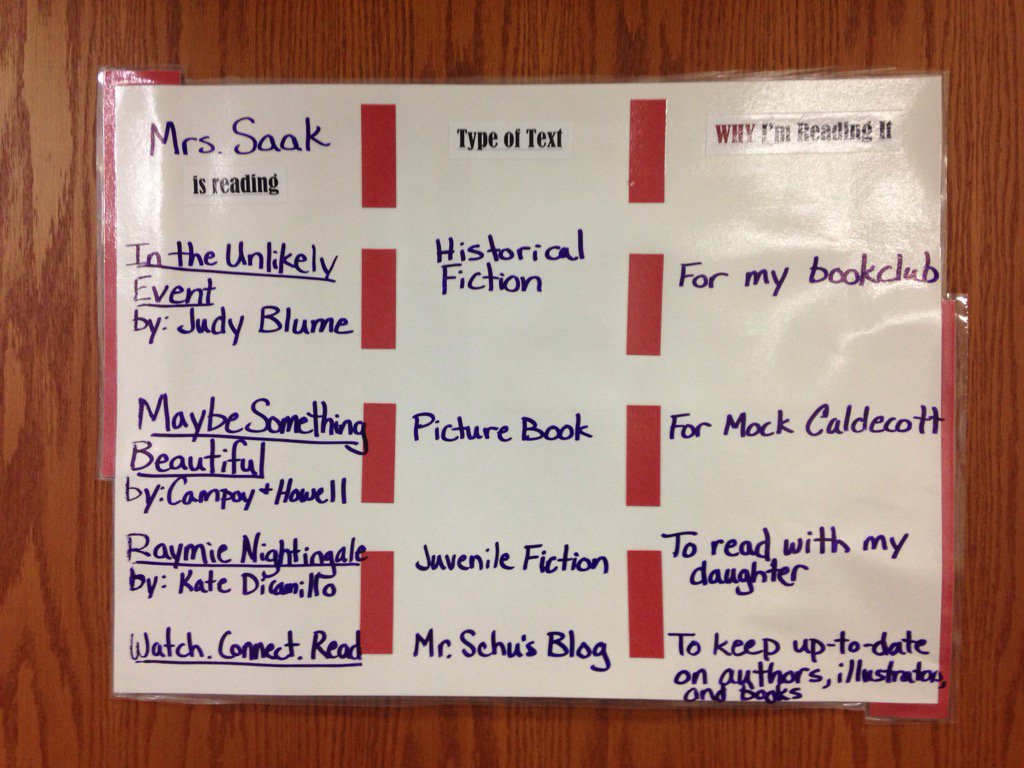 Mrs. Saak
is reading
Type of Text
WHY I'm Reading It
In the Unlikely
Event
by: Judy Blume
Historical
Fiction
For my bookclub
Maybe Something
Beautiful
by: Campoy + Howell
Picture Book
For Mock Caldecott
Raymie Nightingale
by: Kate Dicamillo
Juvenile Fiction
To read with my
daughter
Watch. Connect. Read
Mr. Schu's Blog
To keep up-to-date
on authors, illustrators,
and books